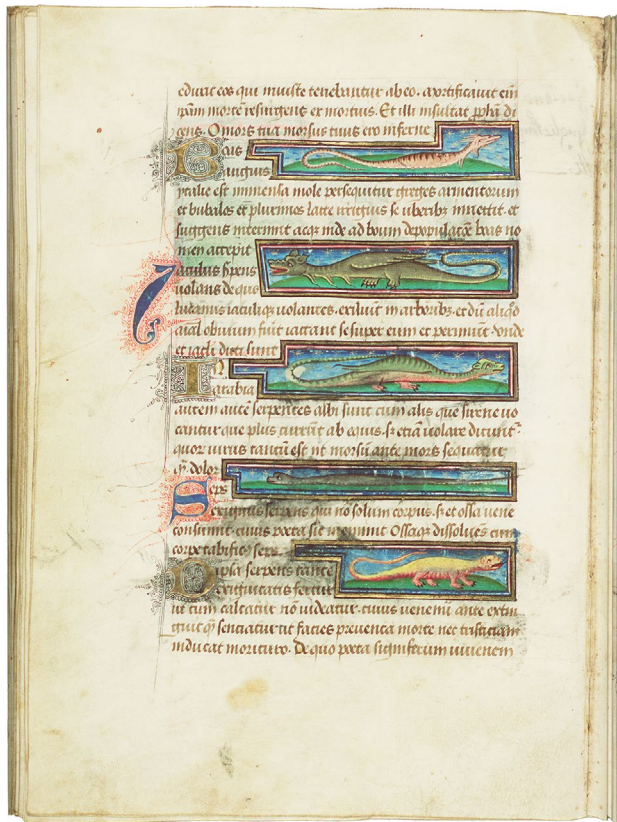 educit eos qui iniuste tenebantur ab eo. mortificauit eni
ipam morte resurgens ex mortuis. Et illi insultat ppha di
cens. O mors ero mors tua morsus tuus ero inferne
Boas
anguis
ytalie est immensa mole persequitur greges armentorum
et bubalos et plurimos lacte irriguis se uberibz innectit. et
suggens interimit atqz inde ad boum depopulatoe boas no
men accepit
Iaculus serpens
uolans de quo
lucanus iaculiqz uolantes. exiliunt in arboribz. et du aliqd
aial obuium fuit iactant se super eum et perimunt. unde
et iacli dicti sunt
In
arabia
autem aute serpentes albi sunt cum alis que sirene uo
cantur que plus currunt ab equis. s; etia uolare dicunt
quor uirus tantu est ut morsu ante mors sequatur
qz dolor
Seps
exiguus serpens qui no solum corpus. s; et ossa uene
no consumit. cuius poeta sic meminit Ossaqz dissoluens cum
corpe tabificus seps
Dipsa serpens tante
exiguitatis fertur
ut cum calcatur no uideatur. cuius uenenu ante extin
guit qz senciatur ut facies preuenta morte nec tristiciam
inducat morituro. De quo poeta signiferum iuuenem